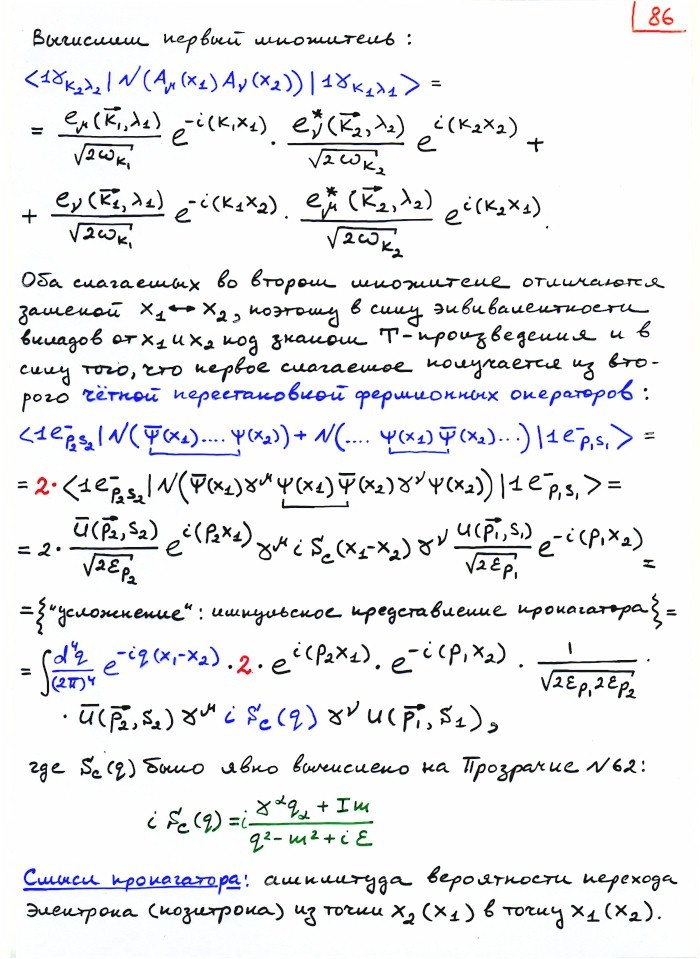 86
Вычислим первый множитель:
<1γ_{k₂λ₂}|N(A_μ(x₁)A_ν(x₂))|1γ_{k₁λ₁}> =
= e_μ(k⃗₁,λ₁)/√(2ω_{k₁}) e^{-i(k₁x₁)} · e*_ν(k⃗₂,λ₂)/√(2ω_{k₂}) e^{i(k₂x₂)} +
+ e_ν(k⃗₁,λ₁)/√(2ω_{k₁}) e^{-i(k₁x₂)} · e*_μ(k⃗₂,λ₂)/√(2ω_{k₂}) e^{i(k₂x₁)}.
Оба слагаемых во втором множителе отличаются
заменой x₁↔x₂, поэтому в силу эквивалентности
вкладов от x₁ и x₂ под знаком T-произведения и в
силу того, что первое слагаемое получается из вто-
рого чётной перестановкой фермионных операторов:
<1e⁻_{p₂s₂}|N(ψ̄(x₁)....ψ(x₂)) + N(.... ψ(x₁)ψ̄(x₂)...)|1e⁻_{p₁s₁}> =
= 2·<1e⁻_{p₂s₂}|N(ψ̄(x₁)γ^μψ(x₁)ψ̄(x₂)γ^νψ(x₂))|1e⁻_{p₁s₁}> =
= 2· ū(p⃗₂,s₂)/√(2ε_{p₂}) e^{i(p₂x₁)} γ^μ i S_c(x₁-x₂) γ^ν u(p⃗₁,s₁)/√(2ε_{p₁}) e^{-i(p₁x₂)} =
={"усложнение": импульсное представление пропагатора}=
= ∫ d⁴q/(2π)⁴ e^{-iq(x₁-x₂)} · 2 · e^{i(p₂x₁)} · e^{-i(p₁x₂)} · 1/√(2ε_{p₁}2ε_{p₂}) ·
· ū(p⃗₂,s₂) γ^μ i S_c(q) γ^ν u(p⃗₁,s₁),
где S_c(q) было явно вычислено на Прозрачке N62:
i S_c(q) = i (γ^α q_α + Im)/(q² - m² + iε)
Смысл пропагатора: амплитуда вероятности перехода
электрона (позитрона) из точки x₂(x₁) в точку x₁(x₂).